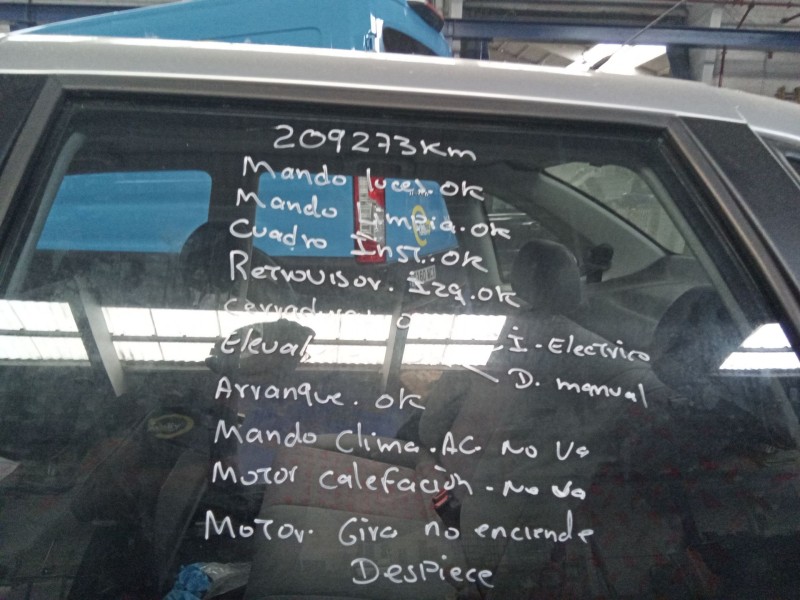 209273 Km
Mando luces. OK
Mando Limpia. OK
Cuadro Inst.. OK
Retrovisor. Izq. OK
Cerradura
Eleval
I. Electrico
D. manual
Arranque. OK
Mando Clima. AC No Va
Motor calefación - No va
Motor. Gira no enciende
Despiece